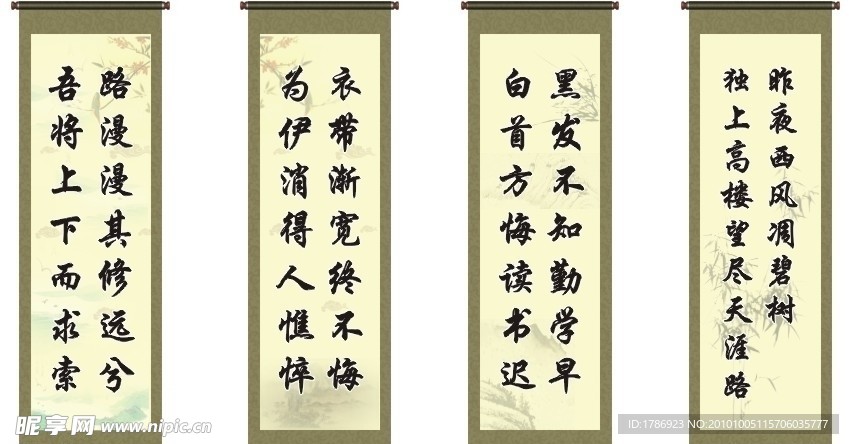 路漫漫其修远兮
吾将上下而求索
衣带渐宽终不悔
为伊消得人憔悴
黑发不知勤学早
白首方悔读书迟
昨夜西风凋碧树
独上高楼望尽天涯路
昵享网 www.nipic.cn
ID:1786923 NO:20101005115706035777